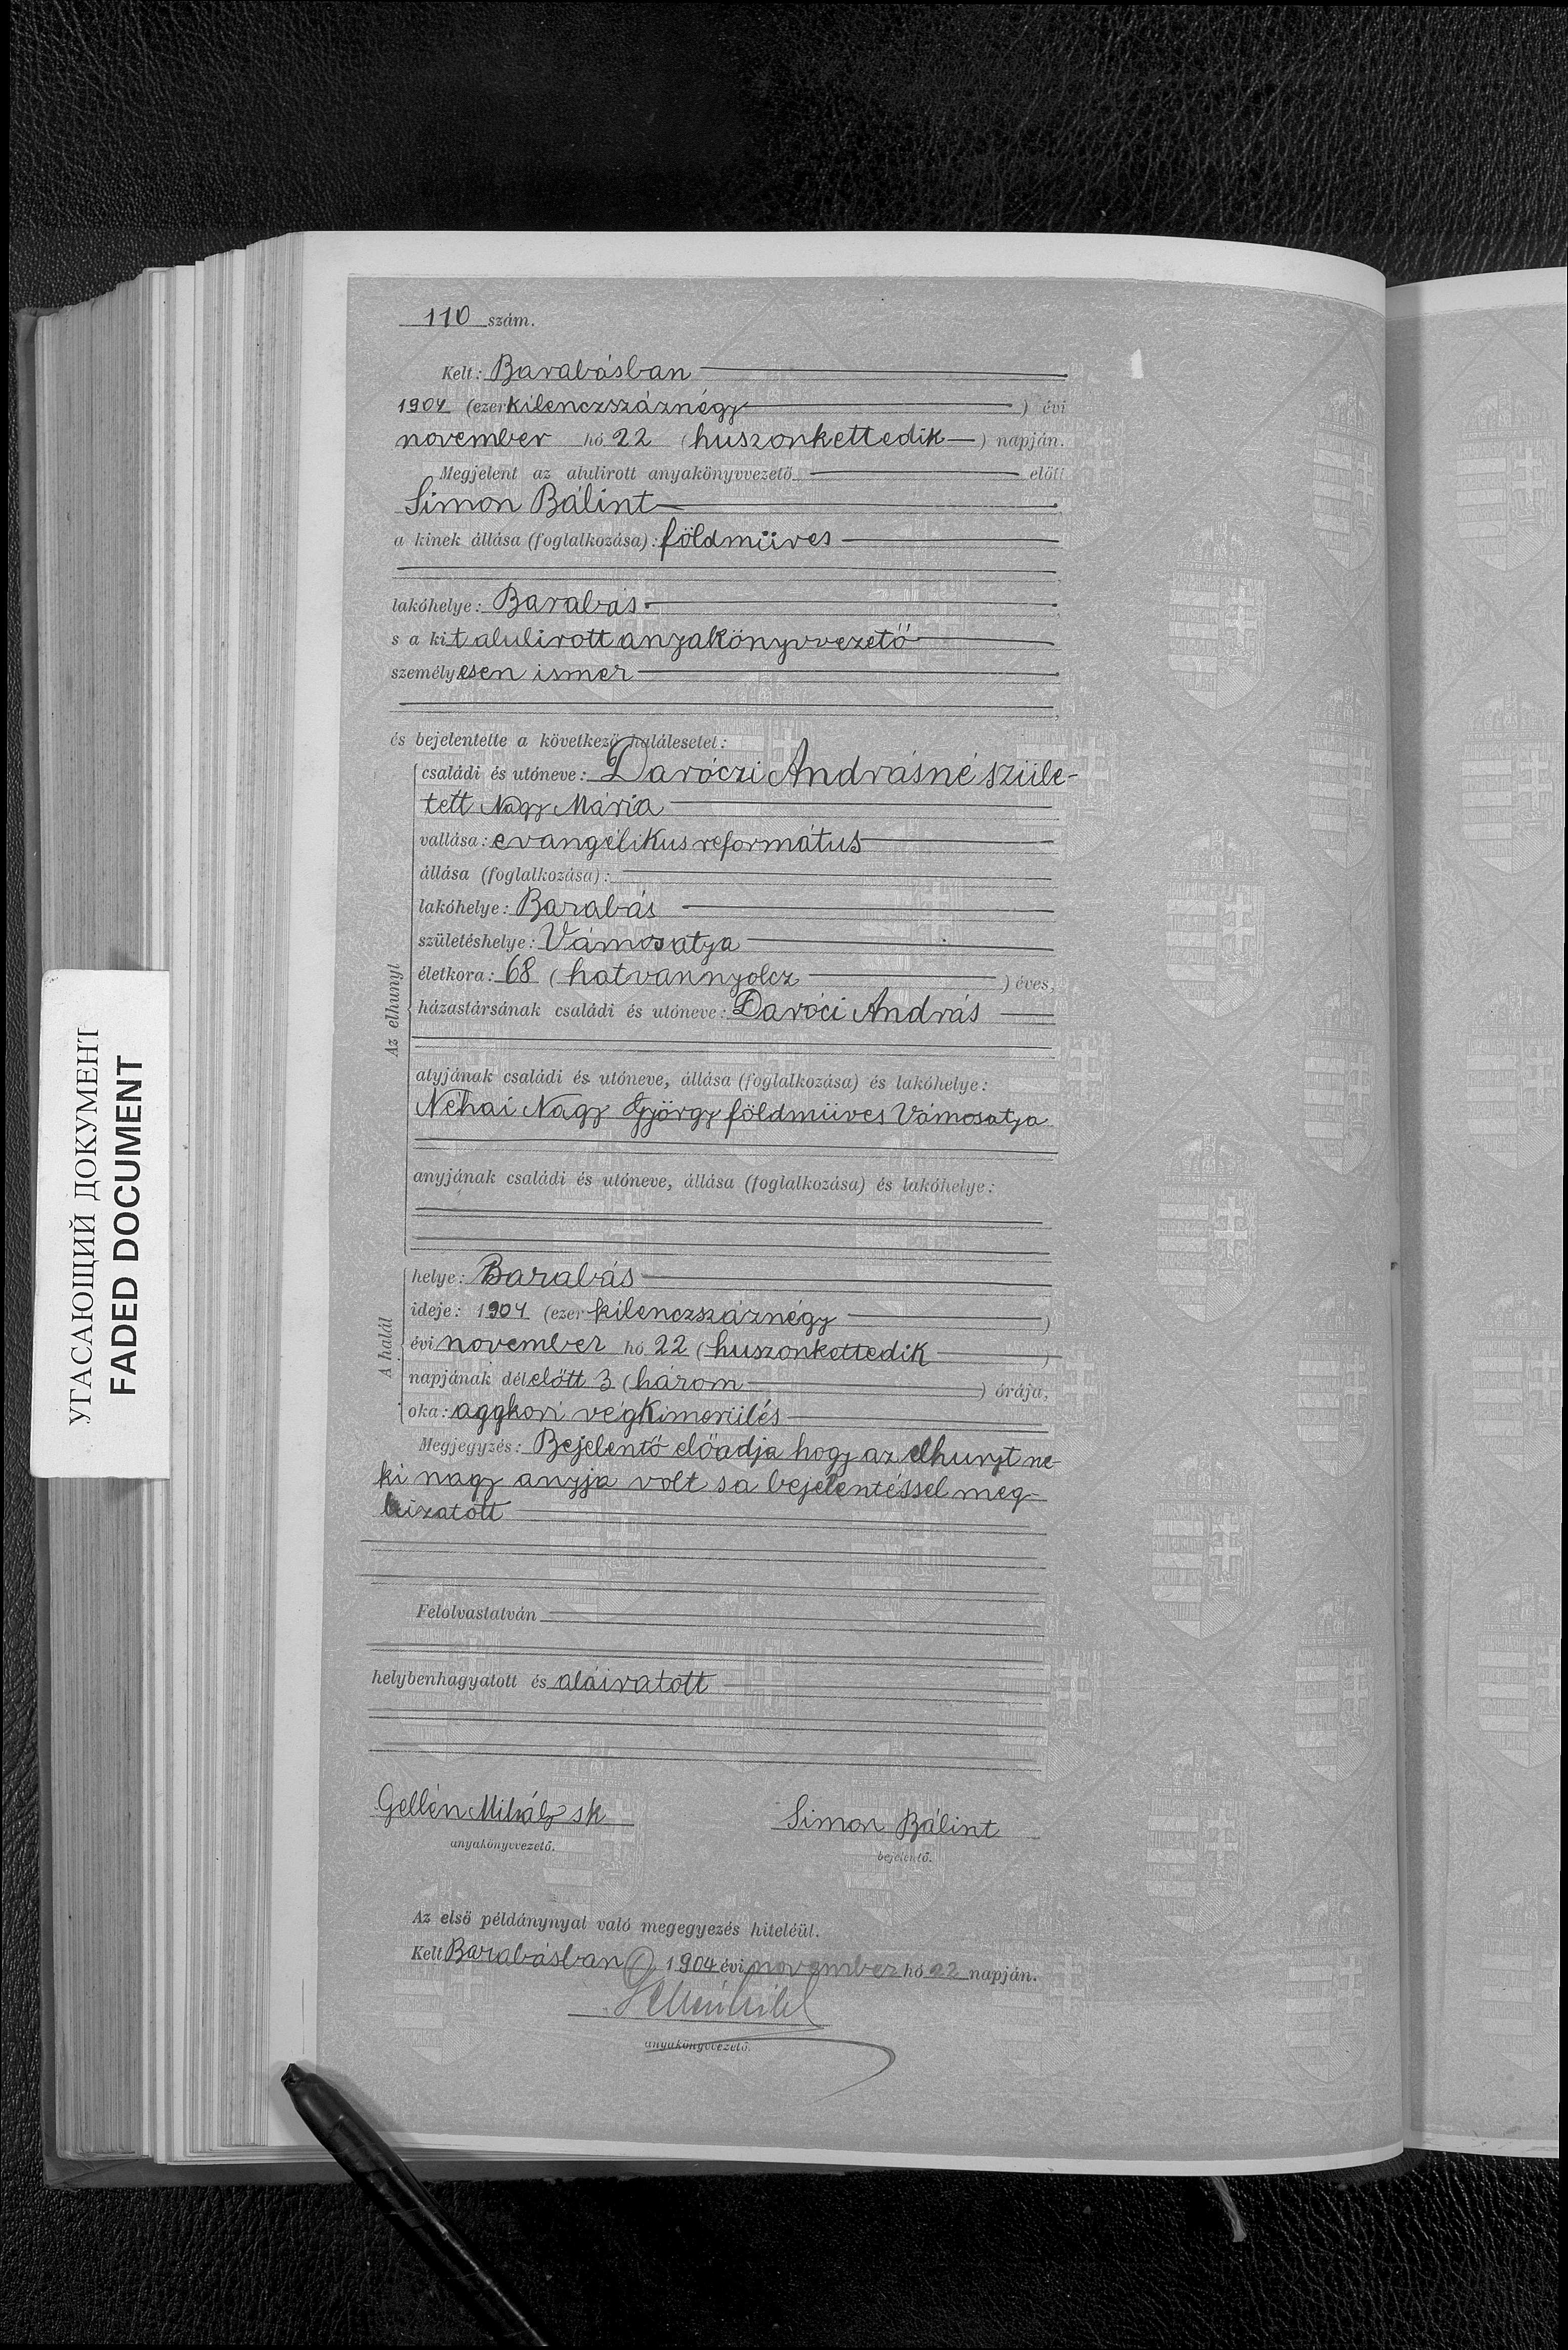 110 szám.
Kelt: Barabásban
1904 (ezer kilenczszáznégy ) évi
november hó 22 (huszonkettedik ) napján.
Megjelent az alulirott anyakönyvvezető előtt
Simon Bálint
a kinek állása (foglalkozása): földmüves
lakóhelye: Barabás
s a kit alulirott anyakönyvvezető
személyesen ismer
és bejelentette a következő halálesetet:
Az elhunyt
családi és utóneve: Daróczi Andrásné szüle-
tett Nagy Mária
vallása: evangélikus református
állása (foglalkozása):
lakóhelye: Barabás
születéshelye: Vámosatya
életkora: 68 (hatvannyolcz ) éves,
házastársának családi és utóneve: Daróci András
atyjának családi és utóneve, állása (foglalkozása) és lakóhelye:
Néhai Nagy György földmüves Vámosatya
anyjának családi és utóneve, állása (foglalkozása) és lakóhelye:
A halál
helye: Barabás
ideje: 1904 (ezer kilenczszáznégy )
évi november hó 22 (huszonkettedik )
napjának délelőtt 3 (három ) órája,
oka: aggkori végkimerülés
Megjegyzés: Bejelentő előadja hogy az elhunyt ne-
ki nagy anyja volt s a bejelentéssel meg-
bizatott
Felolvastatván
helybenhagyatott és aláiratott
Gellén Mihály sk Simon Bálint
anyakönyvvezető. bejelentő.
Az első példánynyal való megegyezés hiteléül.
Kelt Barabásban 1904 évi november hó 22 napján.
anyakönyvvezető.
УГАСАЮЩИЙ ДОКУМЕНТ
FADED DOCUMENT